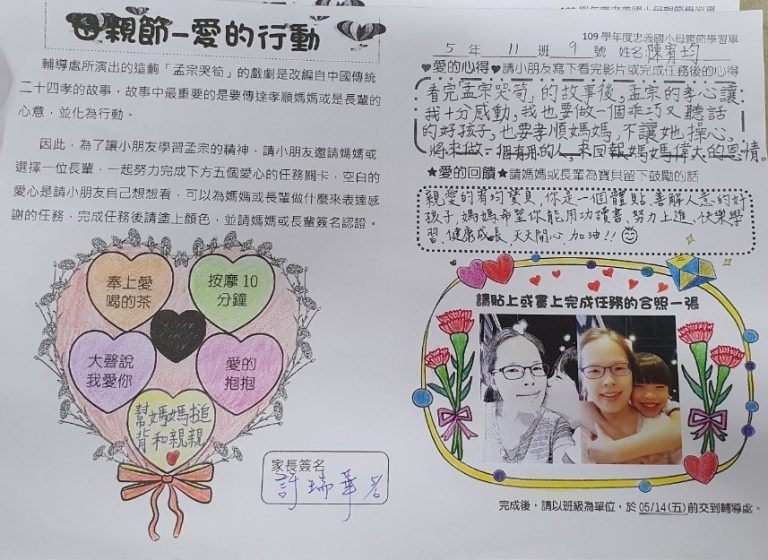 母親節–愛的行動
輔導處所演出的這齣「孟宗哭筍」的戲劇是改編自中國傳統
二十四孝的故事，故事中最重要的是要傳達孝順媽媽或是長輩的
心意，並化為行動。
因此，為了讓小朋友學習孟宗的精神，請小朋友邀請媽媽或
選擇一位長輩，一起努力完成下方五個愛心的任務關卡，空白的
愛心是請小朋友自己想想看，可以為媽媽或長輩做什麼來表達感
謝的任務，完成任務後請塗上顏色，並請媽媽或長輩簽名認證。
奉上愛
喝的茶
按摩10
分鐘
大聲說
我愛你
愛的
抱抱
幫媽媽搥
背和親親
家長簽名
109 學年度忠義國小母親節學習單
5 年 11 班 9 號 姓名 陳宥均
♥愛的心得♥請小朋友寫下看完影片或完成任務後的心得
看完「孟宗哭筍」的故事後，孟宗的孝心讓
我十分感動，我也要做一個乖巧又聽話
的好孩子，也要孝順媽媽，不讓她操心，
將來做一個有用的人，來回報媽媽偉大的恩情。
★愛的回饋★請媽媽或長輩為寶貝留下鼓勵的話
親愛的宥均寶貝，你是一個體貼、善解人意的好
孩子，媽媽希望你能用功讀書、努力上進，快樂學
習、健康成長，天天開心，加油!!
請貼上或畫上完成任務的合照一張
完成後，請以班級為單位，於 05/14(五)前交到輔導處。